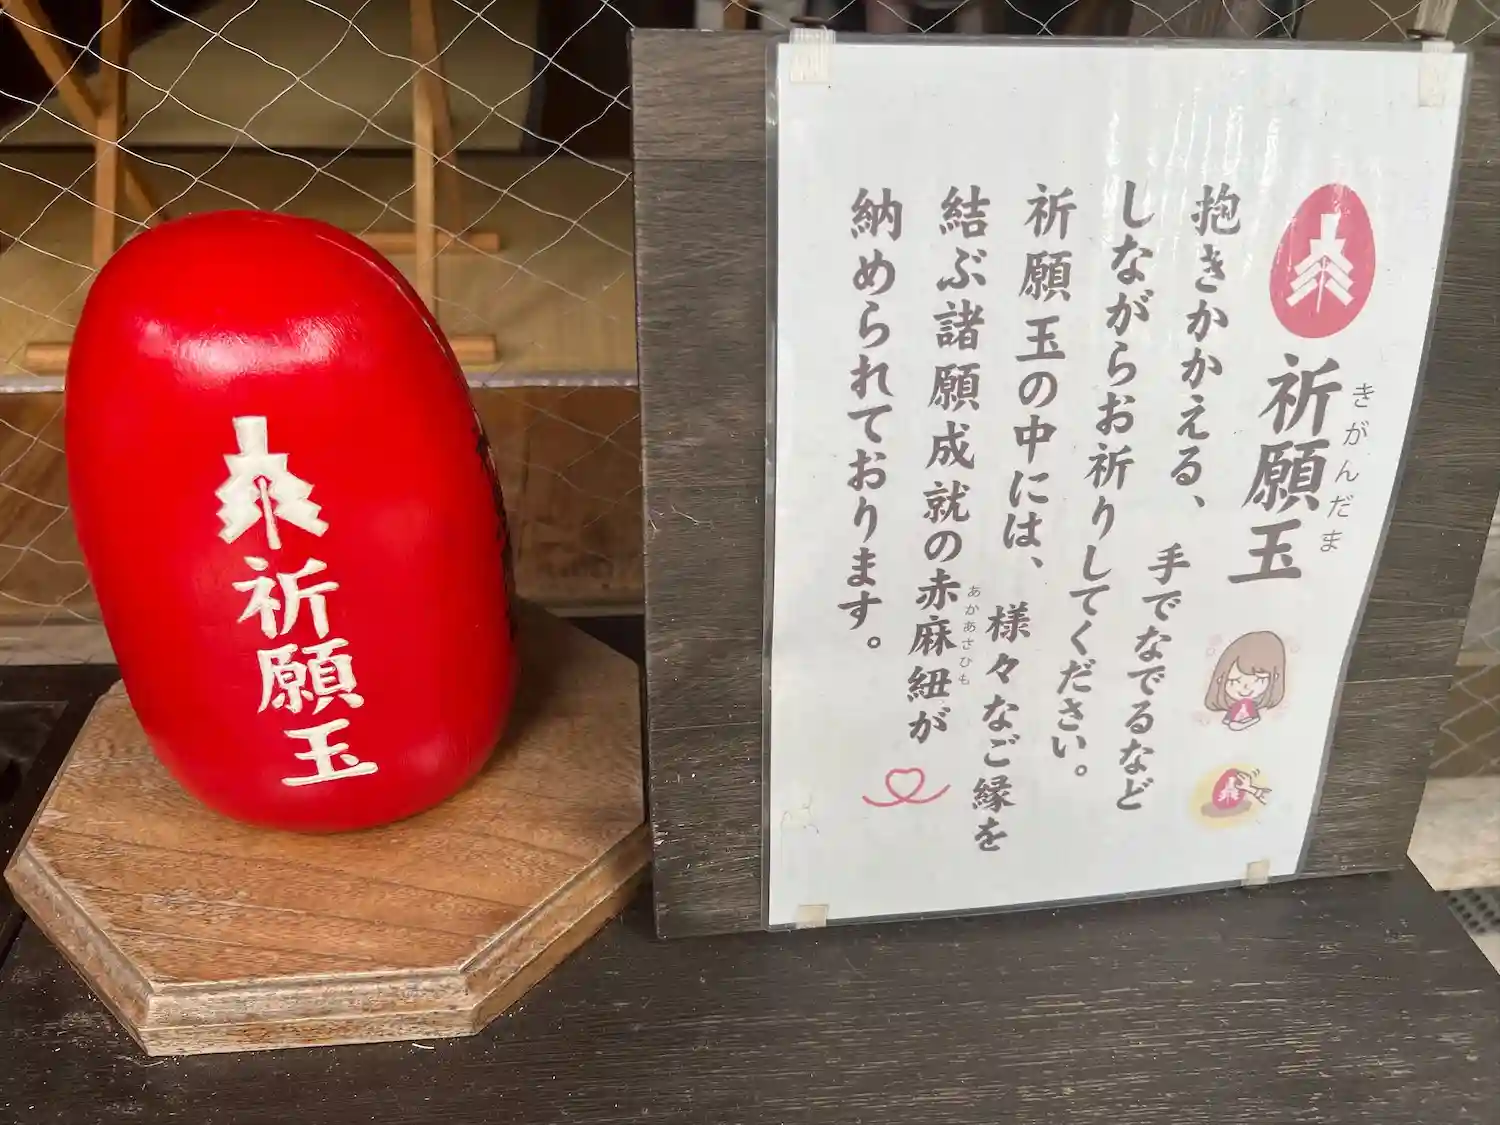 祈願玉
祈願玉
きがんだま
抱きかかえる、手でなでるなど
しながらお祈りしてください。
祈願玉の中には、様々なご縁を
結ぶ諸願成就の赤麻紐が
あかあさひも
納められております。